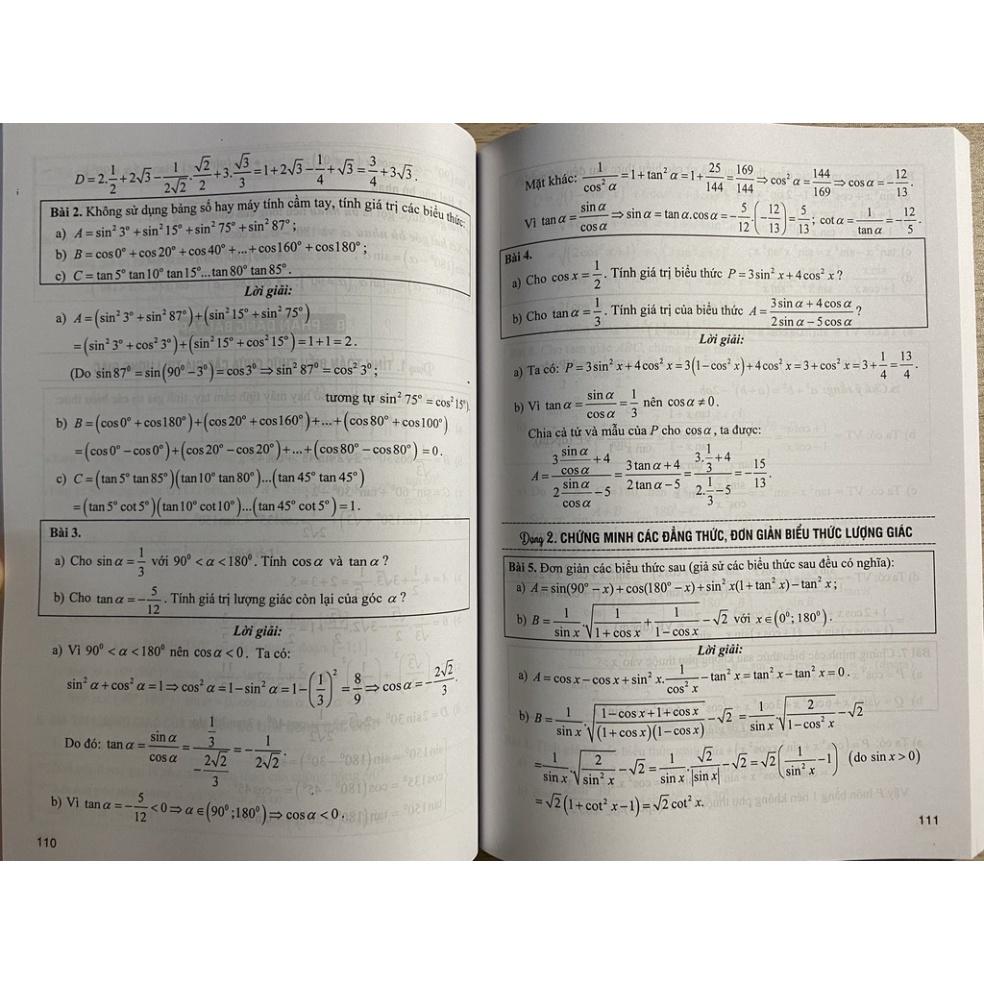 D = 2.1/2 + 2√3 − 1/(2√2).√2/2 + 3.√3/3 = 1 + 2√3 − 1/4 + √3 = 3/4 + 3√3.
Bài 2. Không sử dụng bảng số hay máy tính cầm tay, tính giá trị các biểu thức:
a) A = sin² 3° + sin² 15° + sin² 75° + sin² 87°;
b) B = cos 0° + cos 20° + cos 40° + ... + cos 160° + cos 180°;
c) C = tan 5° tan 10° tan 15°...tan 80° tan 85°.
Lời giải:
a) A = (sin² 3° + sin² 87°) + (sin² 15° + sin² 75°)
= (sin² 3° + cos² 3°) + (sin² 15° + cos² 15°) = 1 + 1 = 2.
(Do sin 87° = sin(90° − 3°) = cos 3° ⇒ sin² 87° = cos² 3°;
tương tự sin² 75° = cos² 15°).
b) B = (cos 0° + cos 180°) + (cos 20° + cos 160°) + ... + (cos 80° + cos 100°)
= (cos 0° − cos 0°) + (cos 20° − cos 20°) + ... + (cos 80° − cos 80°) = 0.
c) C = (tan 5° tan 85°)(tan 10° tan 80°)...(tan 45° tan 45°)
= (tan 5° cot 5°)(tan 10° cot 10°)...(tan 45° cot 5°) = 1.
Bài 3.
a) Cho sin α = 1/3 với 90° < α < 180°. Tính cos α và tan α ?
b) Cho tan α = −5/12. Tính giá trị lượng giác còn lại của góc α ?
Lời giải:
a) Vì 90° < α < 180° nên cos α < 0. Ta có:
sin² α + cos² α = 1 ⇒ cos² α = 1 − sin² α = 1 − (1/3)² = 8/9 ⇒ cos α = −2√2/3.
Do đó: tan α = sin α/cos α = (1/3)/(−2√2/3) = −1/(2√2).
b) Vì tan α = −5/12 < 0 ⇒ α ∈ (90°;180°) ⇒ cos α < 0.
110
Mặt khác: 1/cos² α = 1 + tan² α = 1 + 25/144 = 169/144 ⇒ cos² α = 144/169 ⇒ cos α = −12/13.
Vì tan α = sin α/cos α ⇒ sin α = tan α.cos α = −5/12.(−12/13) = 5/13; cot α = 1/tan α = −12/5.
Bài 4.
a) Cho cos x = 1/2. Tính giá trị biểu thức P = 3sin² x + 4cos² x ?
b) Cho tan α = 1/3. Tính giá trị của biểu thức A = (3sin α + 4cos α)/(2sin α − 5cos α) ?
Lời giải:
a) Ta có: P = 3sin² x + 4cos² x = 3(1 − cos² x) + 4cos² x = 3 + cos² x = 3 + 1/4 = 13/4.
b) Vì tan α = sin α/cos α = 1/3 nên cos α ≠ 0.
Chia cả tử và mẫu của P cho cos α, ta được:
A = (3 sin α/cos α + 4)/(2 sin α/cos α − 5) = (3 tan α + 4)/(2 tan α − 5) = (3.1/3 + 4)/(2.1/3 − 5) = −15/13.
Dạng 2. CHỨNG MINH CÁC ĐẲNG THỨC, ĐƠN GIẢN BIỂU THỨC LƯỢNG GIÁC
Bài 5. Đơn giản các biểu thức sau (giả sử các biểu thức sau đều có nghĩa):
a) A = sin(90° − x) + cos(180° − x) + sin² x(1 + tan² x) − tan² x;
b) B = 1/sin x.√(1/(1 + cos x) + 1/(1 − cos x)) − √2 với x ∈ (0°; 180°).
Lời giải:
a) A = cos x − cos x + sin² x.1/cos² x − tan² x = tan² x − tan² x = 0.
b) B = 1/sin x.√((1 − cos x + 1 + cos x)/((1 + cos x)(1 − cos x))) − √2 = 1/sin x.√(2/(1 − cos² x)) − √2
= 1/sin x.√(2/sin² x) − √2 = 1/sin x.√2/|sin x| − √2 = √2(1/sin² x − 1) (do sin x > 0)
= √2(1 + cot² x − 1) = √2 cot² x.
111